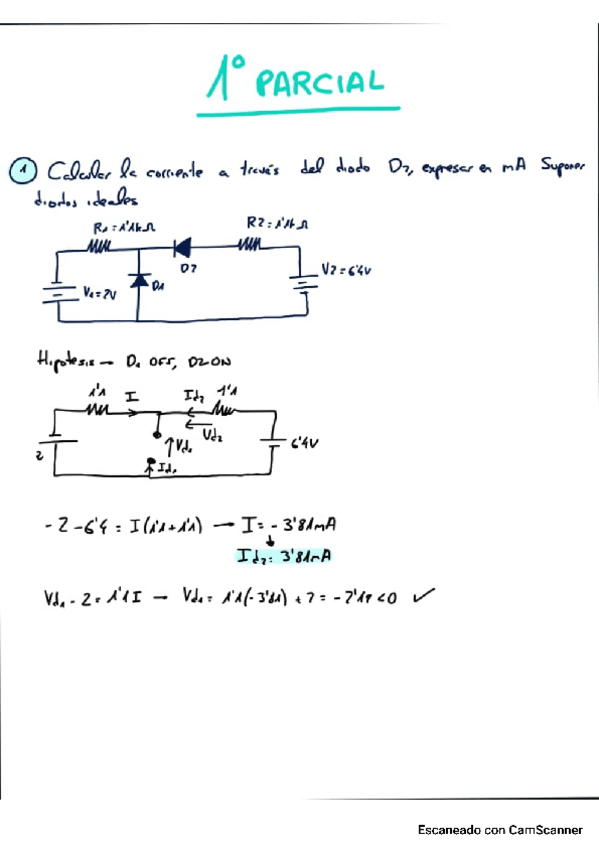 1º PARCIAL
1 Calcular la corriente a través del diodo D2, expresar en mA Suponer
diodos ideales
R1=1'1kΩ
R2=1'1kΩ
D2
D1
V1=2V
V2=6'4V
Hipotesis → D1 OFF, D2 ON
1'1 I Id2 1'1
Vd2
2
↑Vd1
6'4V
Id1
-2-6'4 = I(1'1+1'1) → I = -3'81mA
Id2: 3'81mA
Vd1 - 2 = 1'1 I → Vd1 = 1'1(-3'81) + 2 = -2'19 < 0 ✓
Escaneado con CamScanner